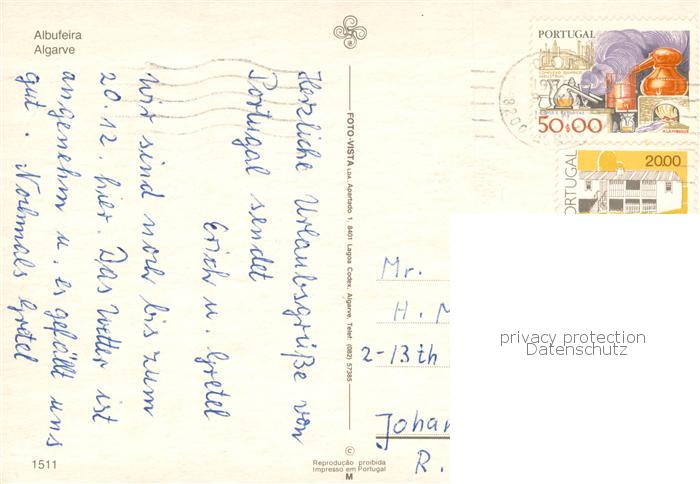 Albufeira
Algarve
Herzliche Urlaubsgrüße von
Portugal sendet
Erich u. Gretel
Wir sind noch bis zum
20.12. hier. Das Wetter ist
angenehm u. es gefällt uns
gut. Nochmals Gretel
1511
FOTO-VISTA LDA. Apartado 1, 8401 Lagoa Codex, Algarve, Telef: (082) 57385
©
Reprodução proibida
Impresso em Portugal
M
PORTUGAL
50$00
8200
20.00
PORTUGAL
Mr.
H. M
2-13th
Johan
R.
privacy protection
Datenschutz